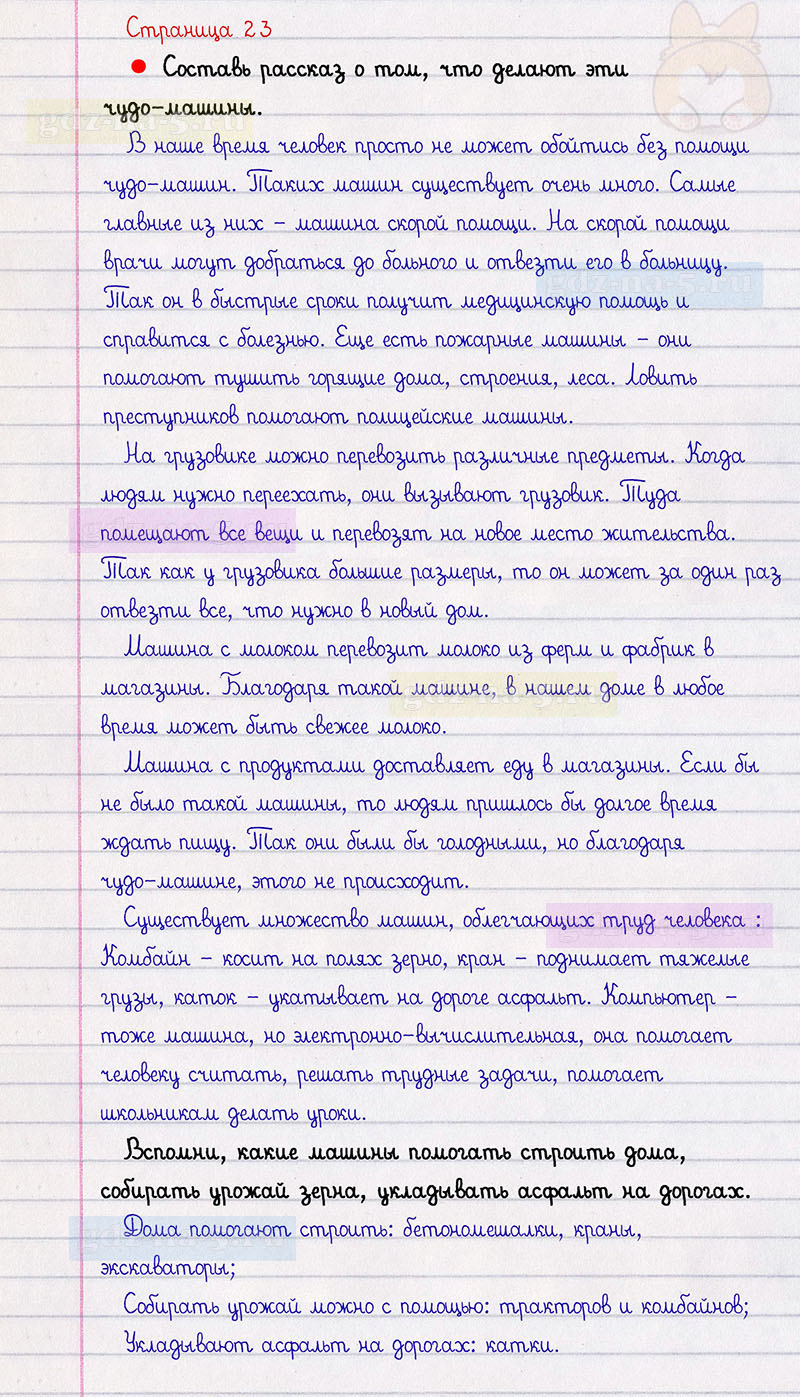 Страница 23
• Составь рассказ о том, что делают эти
чудо-машины.
gdz-na-5.ru
В наше время человек просто не может обойтись без помощи
чудо-машин. Таких машин существует очень много. Самые
главные из них - машина скорой помощи. На скорой помощи
врачи могут добраться до больного и отвезти его в больницу.
gdz-na-5.ru
Так он в быстрые сроки получит медицинскую помощь и
справится с болезнью. Еще есть пожарные машины - они
помогают тушить горящие дома, строения, леса. Ловить
преступников помогают полицейские машины.
На грузовике можно перевозить различные предметы. Когда
людям нужно переехать, они вызывают грузовик. Туда
помещают все вещи и перевозят на новое место жительства.
gdz-na-5.ru
Так как у грузовика большие размеры, то он может за один раз
отвезти все, что нужно в новый дом.
Машина с молоком перевозит молоко из ферм и фабрик в
магазины. Благодаря такой машине, в нашем доме в любое
gdz-na-5.ru
время может быть свежее молоко.
Машина с продуктами доставляет еду в магазины. Если бы
не было такой машины, то людям пришлось бы долгое время
ждать пищу. Так они были бы голодными, но благодаря
чудо-машине, этого не происходит.
Существует множество машин, облегчающих труд человека :
gdz-na-5.ru
Комбайн - косит на полях зерно, кран - поднимает тяжелые
грузы, каток - укатывает на дороге асфальт. Компьютер -
тоже машина, но электронно-вычислительная, она помогает
человеку считать, решать трудные задачи, помогает
школьникам делать уроки.
Вспомни, какие машины помогать строить дома,
собирать урожай зерна, укладывать асфальт на дорогах.
Дома помогают строить: бетономешалки, краны,
gdz-na-5.ru
экскаваторы;
Собирать урожай можно с помощью: тракторов и комбайнов;
Укладывают асфальт на дорогах: катки.